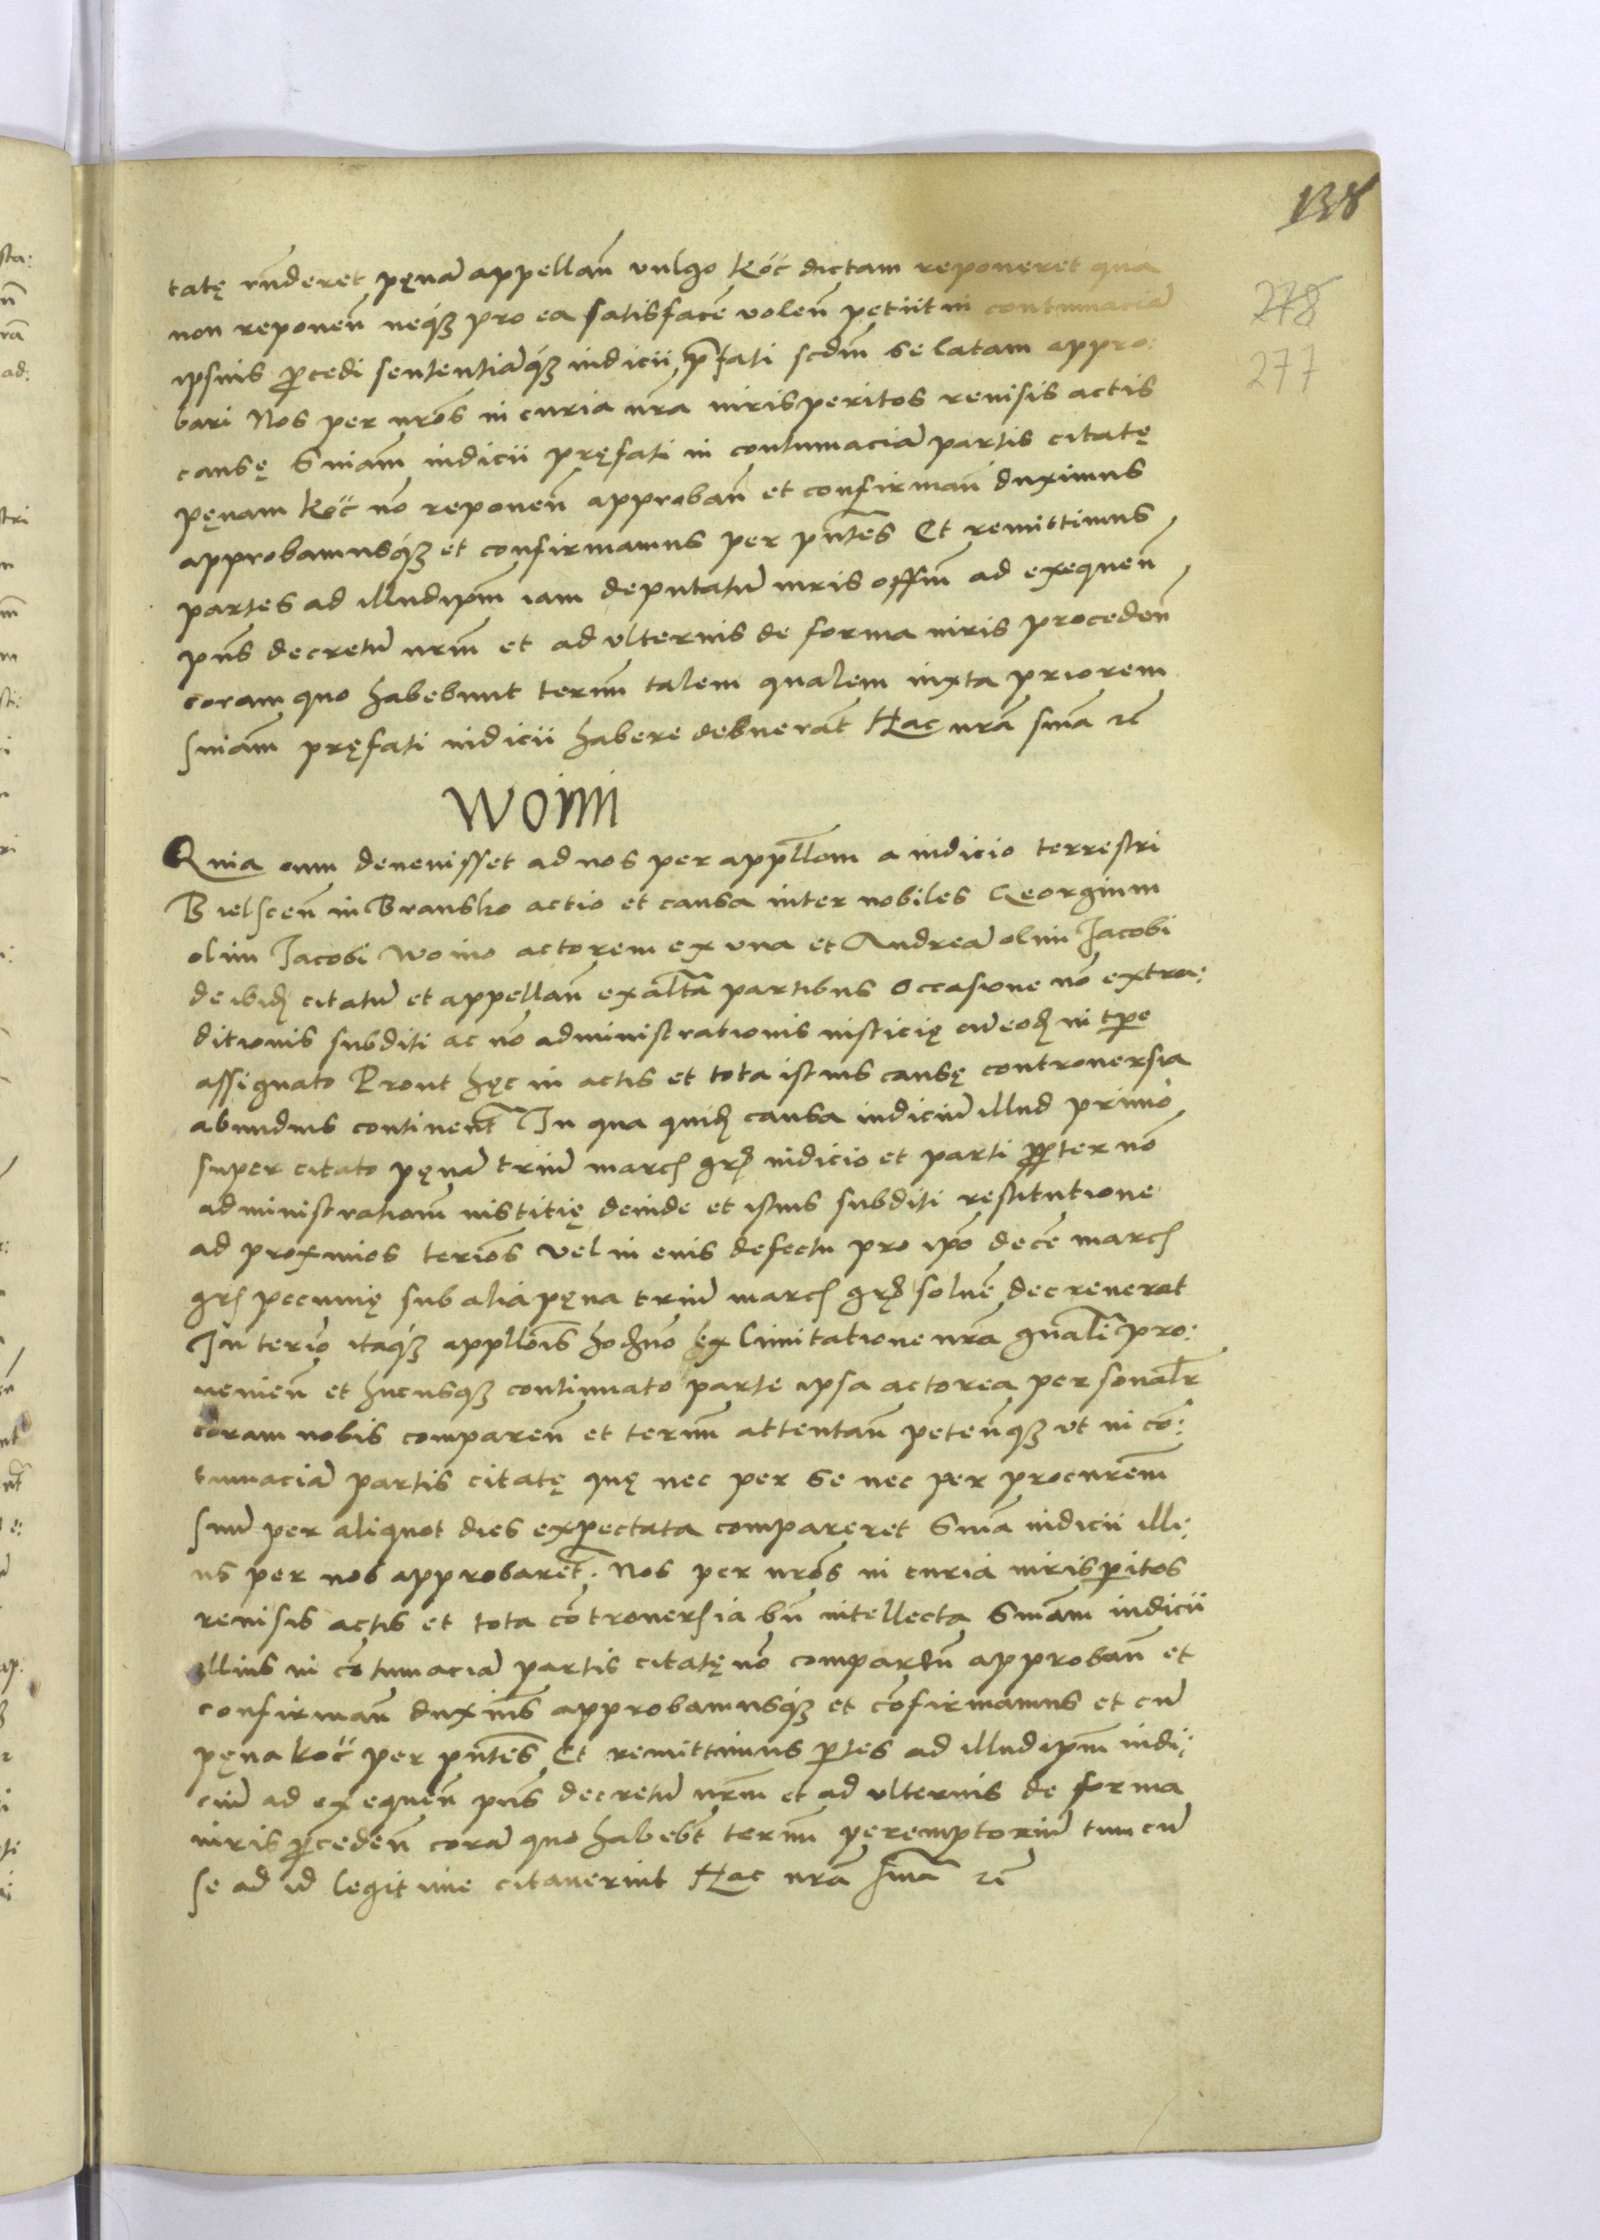 138
278
277
tatę rn̄deret pęnā appellan̄ vulgo koć dictam reponeret qua
non reponen̄ neqꝫ pro ea satisfacē volen̄ petiit in contumaciā
ipsius p̄cedi sententiāqꝫ iudicii p̄fati scdm̄ se latam appro:
bari Nos per nr̄os in curia nr̄a iurisperitos reuisis actis
causę Sniam̄ iudicii pręfati in contumaciā partis citatę
pęnam koć nō reponen̄ approban̄ et confirman̄ duximus
approbamusqꝫ et confirmamus per pn̄tes Et remittimus
partes ad illudipm̄ iam deputatū iuris offm̄ ad exequen̄
pn̄s decretū nrm̄ et ad vlterius de forma iuris proceden̄
coram quo habebunt termī talem qualem iuxta priorem
Sniam̄ pręfati iudicii habere debuerāt Hac nrā snīa etc̄
Woini
Quia cum deuenisset ad nos per appllōem a iudicio terrestri
Bielscen̄ in Bransko actio et causa inter nobiles Georgium
olim Jacobi Woino actorem ex vna et Andreā olim Jacobi
de ibidꝫ citatū et appellan̄ ex altā partibus Occasione nō extra:
ditionis subditi ac nō administrationis iusticię cū eodꝫ in tpe
assignato Prout hęc in actis et tota istius causę controuersia
abundius continent̄ In qua quidꝫ causa iudiciū illud primo
super citato pęnā triū march gr̄ iudicio et parti ppter nō
administrationem̄ iustitię deinde et istius subditi restitutione
ad proximos teriōs vel in eius defectu pro ipō decē march
gr̄ pecunię sub alia pęna triū march gr̄ soluē decreuerat
In teriō itaqꝫ appllōis hodn̄o ex limitatione nrā gn̄ali pro:
uenien̄ et hucusqꝫ continuato parte ipsa actorea personalr̄
coram nobis comparen̄ et termī attentan̄ peten̄qꝫ vt in cō:
tumaciā partis citatę quę nec per se nec per procurēm
suū per aliquot dies expectata compareret Snīa iudicii illi:
us per nos approbaret̄. Nos per nrōs in curia iurisperitos
reuisis actis et tota cōtrouersia bn̄ intellecta Sniam̄ iudicii
illius in cōtumaciā partis citatę nō comparen̄ approban̄ et
confirman̄ duxim̄s approbamusqꝫ et cōfirmamus et cū
pęna koć per pn̄tes Et remittimus ptes ad illudipm̄ iudi:
ciū ad exequen̄ pn̄s decretū nrm̄ et ad vlterius de forma
iuris p̄ceden̄ corā quo habebt̄ termī peremptoriū tum cū
se ad id legitime citauerint Hac nrā snīa etc̄